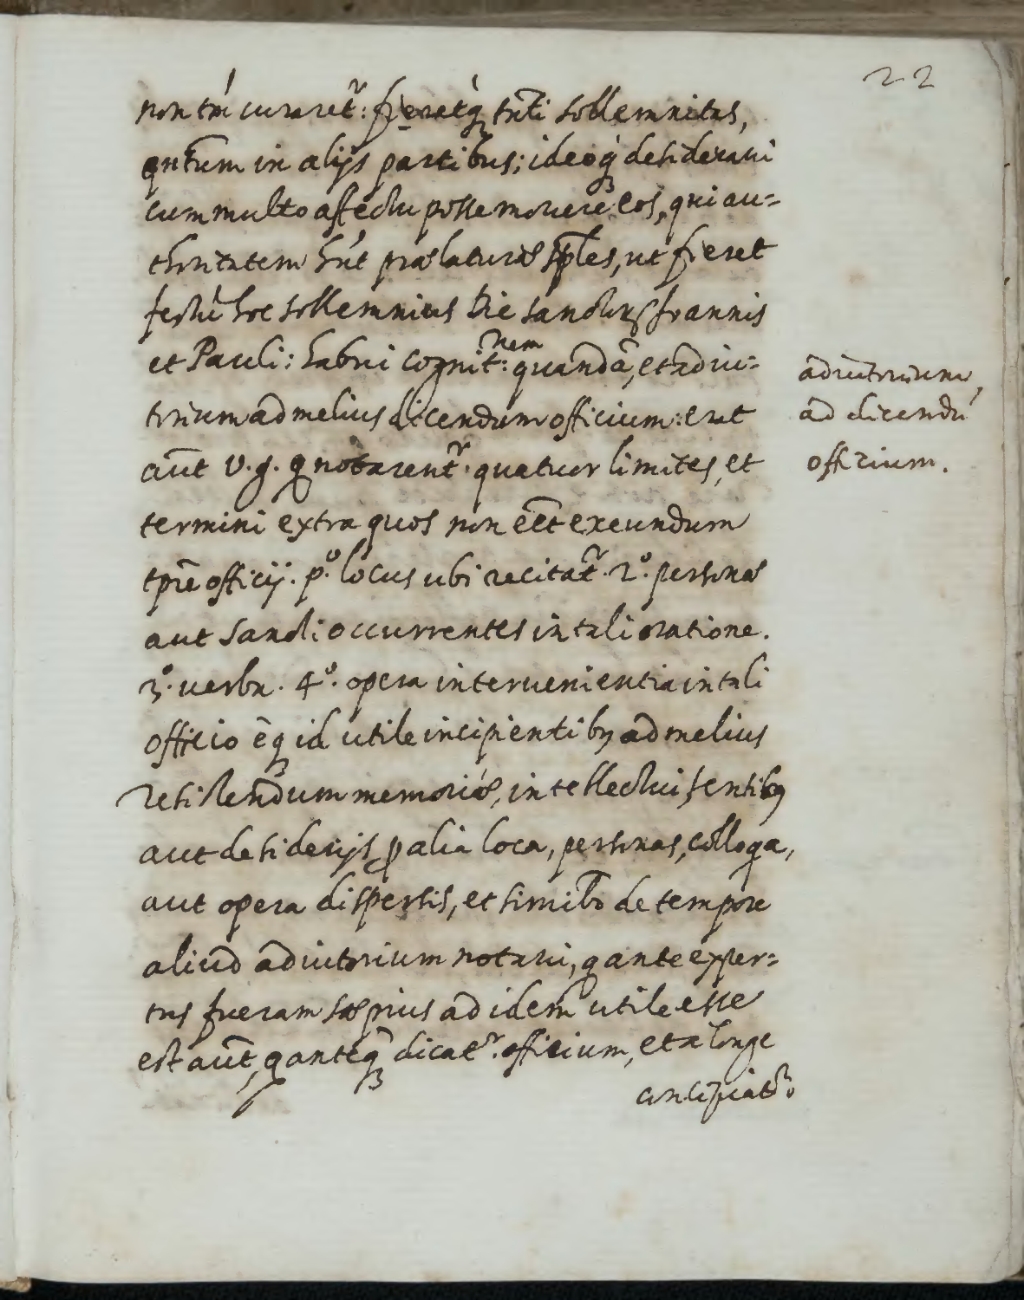 22
non tm̃ curaret͛: fieretq́ꝫ tñti sollemnitas,
qñtum in alijs partibus; ideoq́ꝫ desideraui
cum multo affectu posse mouere eos, qui au=
thoritatem hñt prælaturæ spl̃es, ut fieret
festũ hoc sollemnius Die sanctorꝝ Joannis
et Pauli: habui cognit:nem quandã, et adiu=
torium ad melius dicendum officium: erat
aũt v.g. q̃ notarent͛. quatuor limites, et
termini extra quos non eẽt exeundum
tp̃re officij. p.º locus ubi recitat͛. 2.º personæ
aut Sancti occurrentes in tali oratione.
3.º uerba. 4.º opera interuenientia in tali
officio ẽqꝫ id utile incipientibꝫ ad melius
retinendum memoriã, intellectui, sentibꝫ
aut desiderijs ꝑ alia loca, personas, colloq̃a,
aut opera dispersis, et simil̃r de tempore
aliud adiutorium notaui, q̃ ante exper=
tus fueram sæpius ad idem utile esse
est aũt, q̃ anteqꝫ dicat͛. officium, et a longe
anticipat͛
adiutorium,
ad dicendũ
officium.